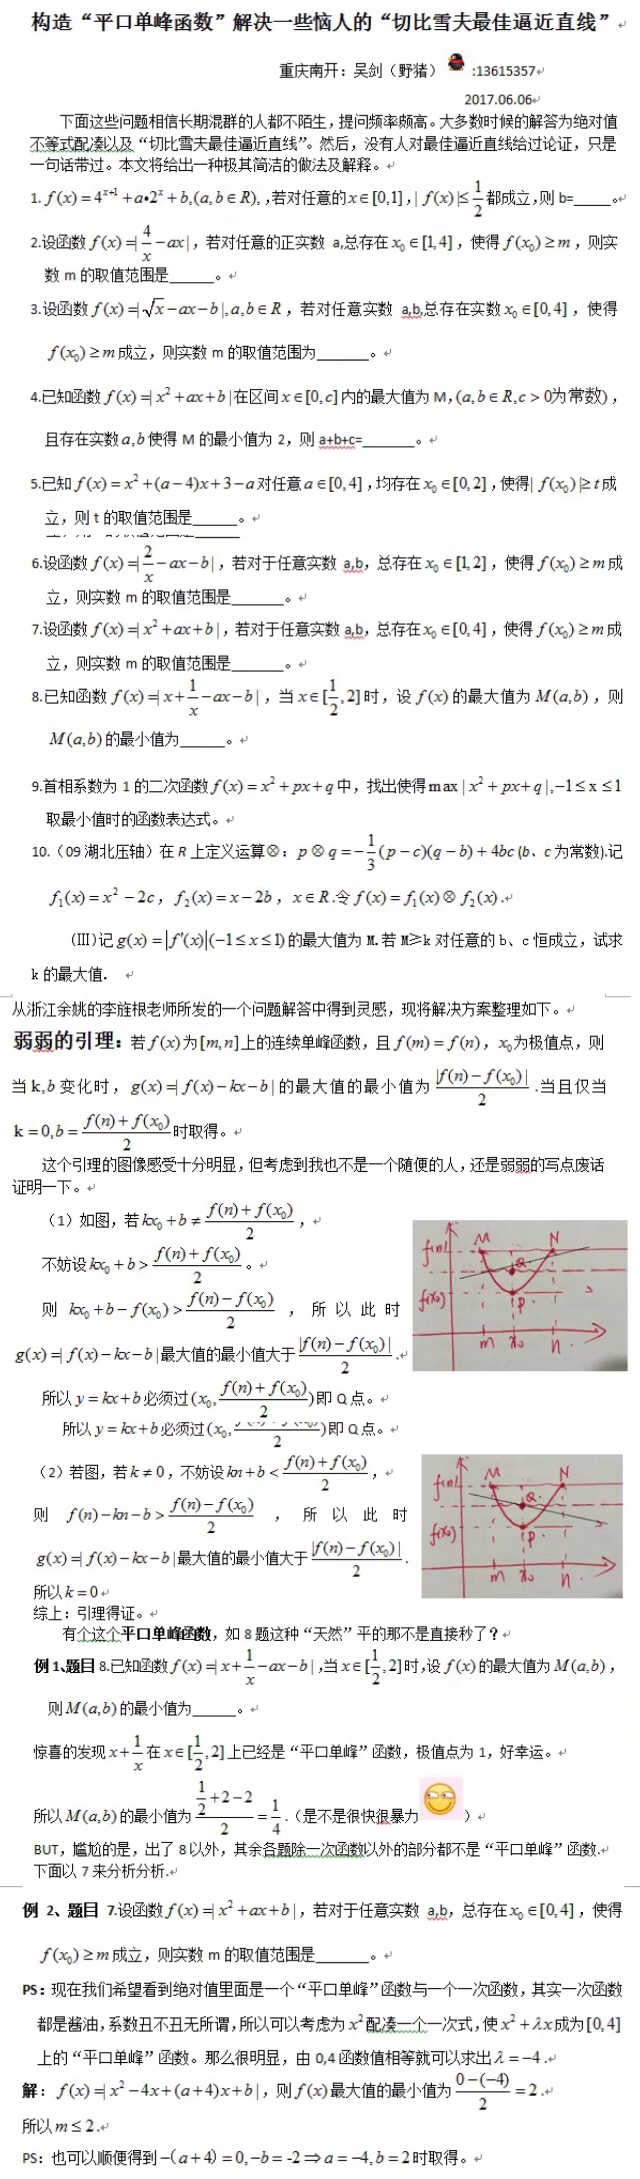 构造“平口单峰函数”解决一些恼人的“切比雪夫最佳逼近直线”
重庆南开：吴剑（野猪） :13615357
2017.06.06
下面这些问题相信长期混群的人都不陌生，提问频率颇高。大多数时候的解答为绝对值
不等式配凑以及“切比雪夫最佳逼近直线”。然后，没有人对最佳逼近直线给过论证，只是
一句话带过。本文将给出一种极其简洁的做法及解释。
1. f(x)=4^{x+1}+a•2^x+b,(a,b∈R),,若对任意的x∈[0,1],|f(x)|≤1/2都成立,则b=_____。
2.设函数f(x)=|4/x-ax|，若对任意的正实数 a,总存在x₀∈[1,4]，使得f(x₀)≥m，则实
数m的取值范围是______。
3.设函数f(x)=|√x-ax-b|,a,b∈R，若对任意实数 a,b,总存在实数x₀∈[0,4]，使得
f(x₀)≥m成立，则实数m的取值范围为_______。
4.已知函数f(x)=|x²+ax+b|在区间x∈[0,c]内的最大值为M,(a,b∈R,c>0为常数)，
且存在实数a,b使得M的最小值为2，则a+b+c=_______。
5.已知f(x)=x²+(a-4)x+3-a对任意a∈[0,4]，均存在x₀∈[0,2]，使得|f(x₀)|≥t成
立，则t的取值范围是______。
6.设函数f(x)=|2/x-ax-b|，若对于任意实数 a,b，总存在x₀∈[1,2]，使得f(x₀)≥m成
立，则实数m的取值范围是_______。
7.设函数f(x)=|x²+ax+b|，若对于任意实数a,b，总存在x₀∈[0,4]，使得f(x₀)≥m成
立，则实数m的取值范围是_______。
8.已知函数f(x)=|x+1/x-ax-b|，当x∈[1/2,2]时，设f(x)的最大值为M(a,b)，则
M(a,b)的最小值为______。
9.首相系数为1的二次函数f(x)=x²+px+q中，找出使得max|x²+px+q|,-1≤x≤1
取最小值时的函数表达式。
10.（09湖北压轴）在R上定义运算⊗：p⊗q=-1/3(p-c)(q-b)+4bc(b、c为常数).记
f₁(x)=x²-2c，f₂(x)=x-2b，x∈R.令f(x)=f₁(x)⊗f₂(x).
(Ⅲ)记g(x)=|f′(x)|(-1≤x≤1)的最大值为M.若M≥k对任意的b、c恒成立，试求
k的最大值.
从浙江余姚的李旌根老师所发的一个问题解答中得到灵感，现将解决方案整理如下。
弱弱的引理：若f(x)为[m,n]上的连续单峰函数，且f(m)=f(n)，x₀为极值点，则
当k,b变化时，g(x)=|f(x)-kx-b|的最大值的最小值为|f(n)-f(x₀)|/2.当且仅当
k=0,b=(f(n)+f(x₀))/2时取得。
这个引理的图像感受十分明显，但考虑到我也不是一个随便的人，还是弱弱的写点废话
证明一下。
（1）如图，若kx₀+b≠(f(n)+f(x₀))/2，
不妨设kx₀+b>(f(n)+f(x₀))/2。
则 kx₀+b-f(x₀)>(f(n)-f(x₀))/2 ，所以此时
g(x)=|f(x)-kx-b|最大值的最小值大于|f(n)-f(x₀)|/2.
所以y=kx+b必须过(x₀,(f(n)+f(x₀))/2)即Q点。
所以y=kx+b必须过(x₀,f(n)+f(x₀)/2)即Q点。
f(n) M N Q f(x₀) P m x₀ n
（2）若图，若k≠0，不妨设kn+b<(f(n)+f(x₀))/2，
则 f(n)-kn-b>(f(n)-f(x₀))/2 ，所以此时
g(x)=|f(x)-kx-b|最大值的最小值大于|f(n)-f(x₀)|/2.
所以k=0
f(n) M N Q f(x₀) P m x₀ n
综上：引理得证。
有个这个平口单峰函数，如8题这种“天然”平的那不是直接秒了？
例1、题目8.已知函数f(x)=|x+1/x-ax-b|,当x∈[1/2,2]时,设f(x)的最大值为M(a,b)，
则M(a,b)的最小值为______。
惊喜的发现x+1/x在x∈[1/2,2]上已经是“平口单峰”函数，极值点为1，好幸运。
所以M(a,b)的最小值为(1/2+2-2)/2=1/4.（是不是很快很暴力 ）
BUT，尴尬的是，出了8以外，其余各题除一次函数以外的部分都不是“平口单峰”函数.
下面以7来分析分析.
例 2、题目 7.设函数f(x)=|x²+ax+b|，若对于任意实数 a,b，总存在x₀∈[0,4]，使得
f(x₀)≥m成立，则实数m的取值范围是_______。
PS：现在我们希望看到绝对值里面是一个“平口单峰”函数与一个一次函数，其实一次函数
都是酱油，系数丑不丑无所谓，所以可以考虑为x²配凑一个一次式，使x²+λx成为[0,4]
上的“平口单峰”函数。那么很明显，由0,4函数值相等就可以求出λ=-4.
解：f(x)=|x²-4x+(a+4)x+b|，则f(x)最大值的最小值为(0-(-4))/2=2.
所以m≤2.
PS：也可以顺便得到-(a+4)=0,-b=-2⇒a=-4,b=2时取得。